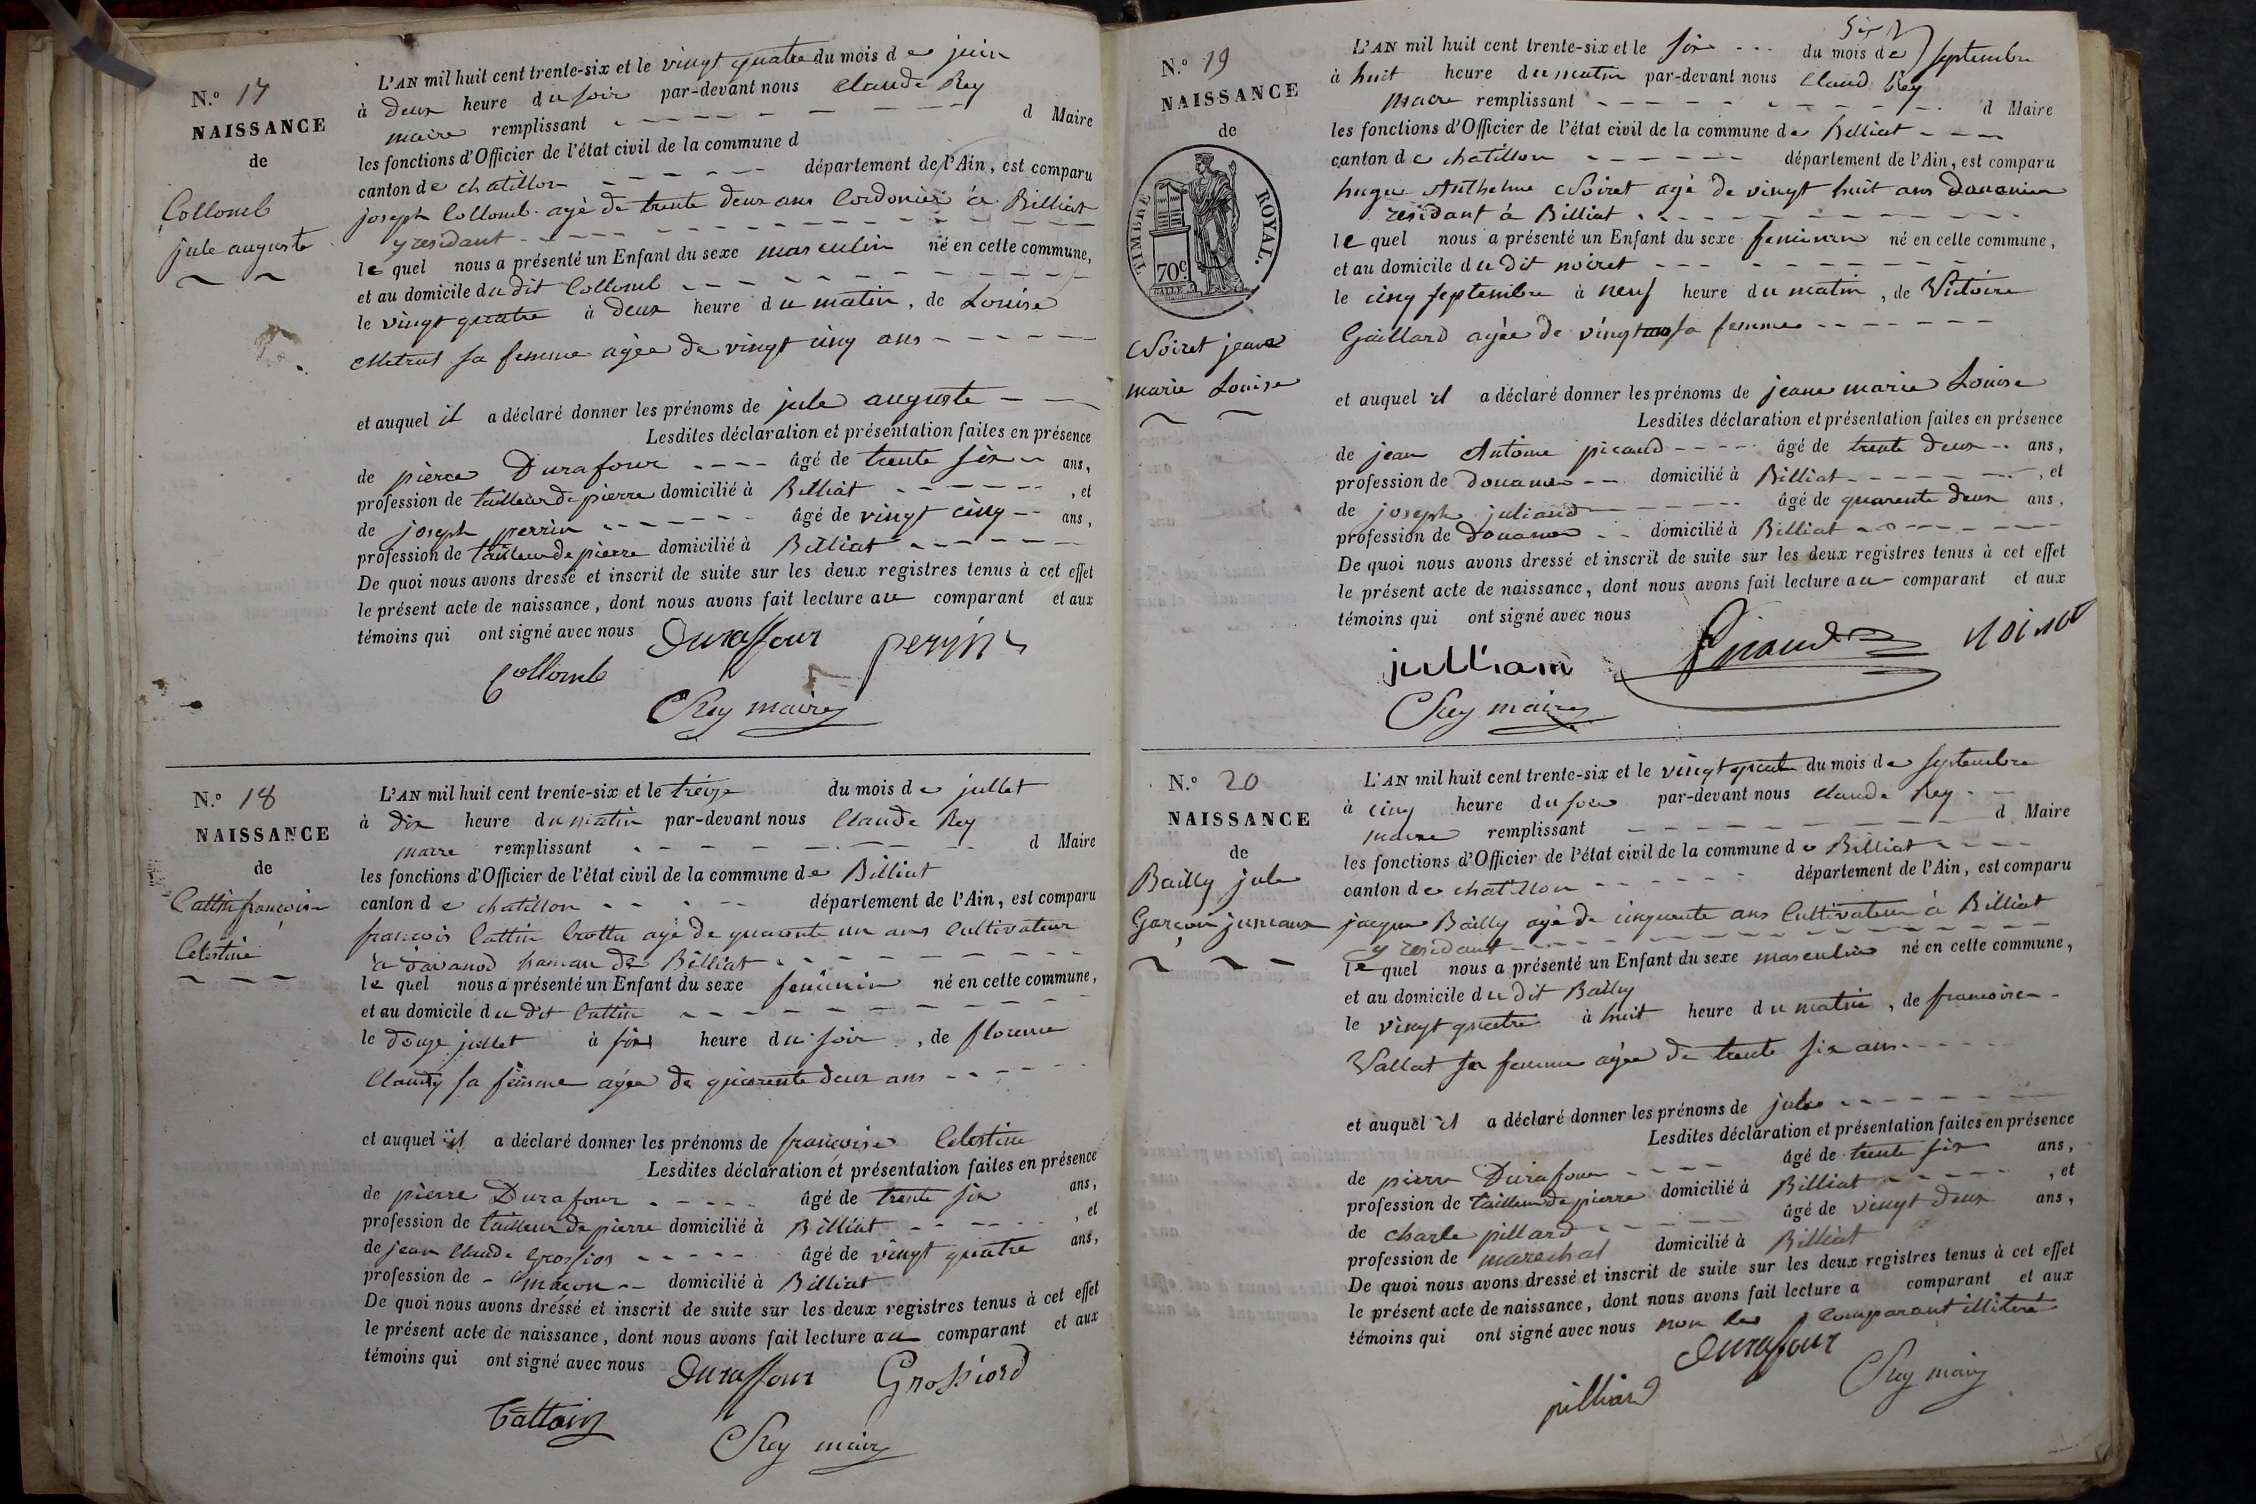 N.º 17
NAISSANCE
de
Collomb
jule auguste
L'AN mil huit cent trente-six et le vingt quatre du mois de juin
à deux heure du soir par-devant nous Claude Rey
maire remplissant d Maire
les fonctions d'Officier de l'état civil de la commune d
canton de chatillon département de l'Ain, est comparu
joseph Collomb agé de trente deux ans Cordonier à Billiat
y residant
le quel nous a présenté un Enfant du sexe masculin né en cette commune,
et au domicile du dit Collomb
le vingt quatre à deux heure du matin, de Louise
Metral sa femme agée de vingt cinq ans
et auquel il a déclaré donner les prénoms de jule auguste
Lesdites déclaration et présentation faites en présence
de pierre Durafour âgé de trente six ans,
profession de tailleur de pierre domicilié à Billiat , et
de joseph perrin âgé de vingt cinq ans,
profession de tailleur de pierre domicilié à Billiat
De quoi nous avons dressé et inscrit de suite sur les deux registres tenus à cet effet
le présent acte de naissance, dont nous avons fait lecture au comparant et aux
témoins qui ont signé avec nous Duraffour perrin
Collomb
Rey maire
N.º 18
NAISSANCE
de
Cattin françoise
Celestine
L'AN mil huit cent trente-six et le treize du mois de jullet
à dix heure du matin par-devant nous Claude Rey
maire remplissant d Maire
les fonctions d'Officier de l'état civil de la commune de Billiat
canton de chatillon département de l'Ain, est comparu
francois Cattin agé de quarante un ans Cultivateur
à Davanod hamau de Billiat
le quel nous a présenté un Enfant du sexe feminin né en cette commune,
et au domicile du dit Cattin
le douze jullet à six heure du soir, de florence
sa femme agée de quarente deux ans
et auquel il a déclaré donner les prénoms de françoise Celestine
Lesdites déclaration et présentation faites en présence
de pierre Durafour âgé de trente six ans,
profession de tailleur de pierre domicilié à Billiat , et
de jean Claude Grossior âgé de vingt quatre ans,
profession de maçon domicilié à Billiat
De quoi nous avons dressé et inscrit de suite sur les deux registres tenus à cet effet
le présent acte de naissance, dont nous avons fait lecture au comparant et aux
témoins qui ont signé avec nous Duraffour Grossiord
Rey maire
N.º 19
NAISSANCE
de
TIMBRE ROYAL.
70c
Noiret jeane
marie Louise
L'AN mil huit cent trente-six et le six du mois de septembre
à huit heure du matin par-devant nous Claud Rey
maire remplissant d Maire
les fonctions d'Officier de l'état civil de la commune de Billiat
canton de chatillon département de l'Ain, est comparu
hugue Anthelme Noiret agé de vingt huit ans douanier
residant à Billiat
le quel nous a présenté un Enfant du sexe feminin né en cette commune,
et au domicile du dit noiret
le cinq septembre à neuf heure du matin, de Victoire
Gaillard agée de vingt sa femme
et auquel il a déclaré donner les prénoms de jeane marie Louise
Lesdites déclaration et présentation faites en présence
de jean Antoine picaud âgé de trente deux ans,
profession de domicilié à Billiat , et
de joseph juliand âgé de quarente deux ans,
profession de domicilié à Billiat
De quoi nous avons dressé et inscrit de suite sur les deux registres tenus à cet effet
le présent acte de naissance, dont nous avons fait lecture au comparant et aux
témoins qui ont signé avec nous
julliam Picaud noiret
Rey maire
N.º 20
NAISSANCE
de
Bailly jule
Garçon jumeaux
L'AN mil huit cent trente-six et le vingt quatre du mois de septembre
à cinq heure du soir par-devant nous Claude Rey
maire remplissant d Maire
les fonctions d'Officier de l'état civil de la commune de Billiat
canton de chatillon département de l'Ain, est comparu
jacque Bailly agé de cinquente ans Cultivateur à Billiat
y residant
le quel nous a présenté un Enfant du sexe masculin né en cette commune,
et au domicile du dit Bailly
le vingt quatre à huit heure du matin, de francoise
Vallet sa femme agée de trente six ans
et auquel il a déclaré donner les prénoms de jule
Lesdites déclaration et présentation faites en présence
de pierre Durafour âgé de trente six ans,
profession de tailleur de pierre domicilié à Billiat , et
de charle pillard âgé de vingt deux ans,
profession de marechal domicilié à Billiat
De quoi nous avons dressé et inscrit de suite sur les deux registres tenus à cet effet
le présent acte de naissance, dont nous avons fait lecture a comparant et aux
témoins qui ont signé avec nous non le comparant illiteré
Duraffour
pilliard Rey maire